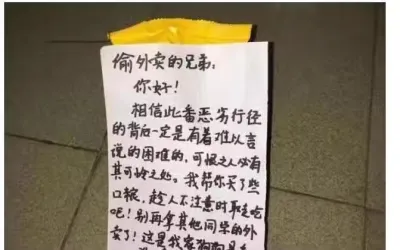 偷外卖的兄弟:
你好!
相信此番恶劣行径
的背后一定是有着难以言
说的困难的,可恨之人必有
其可怜之处。我帮你买了些
口粮,趁人不注意时取走吃
吧!别再拿其他同学的外
卖了!这是我家狗狗最